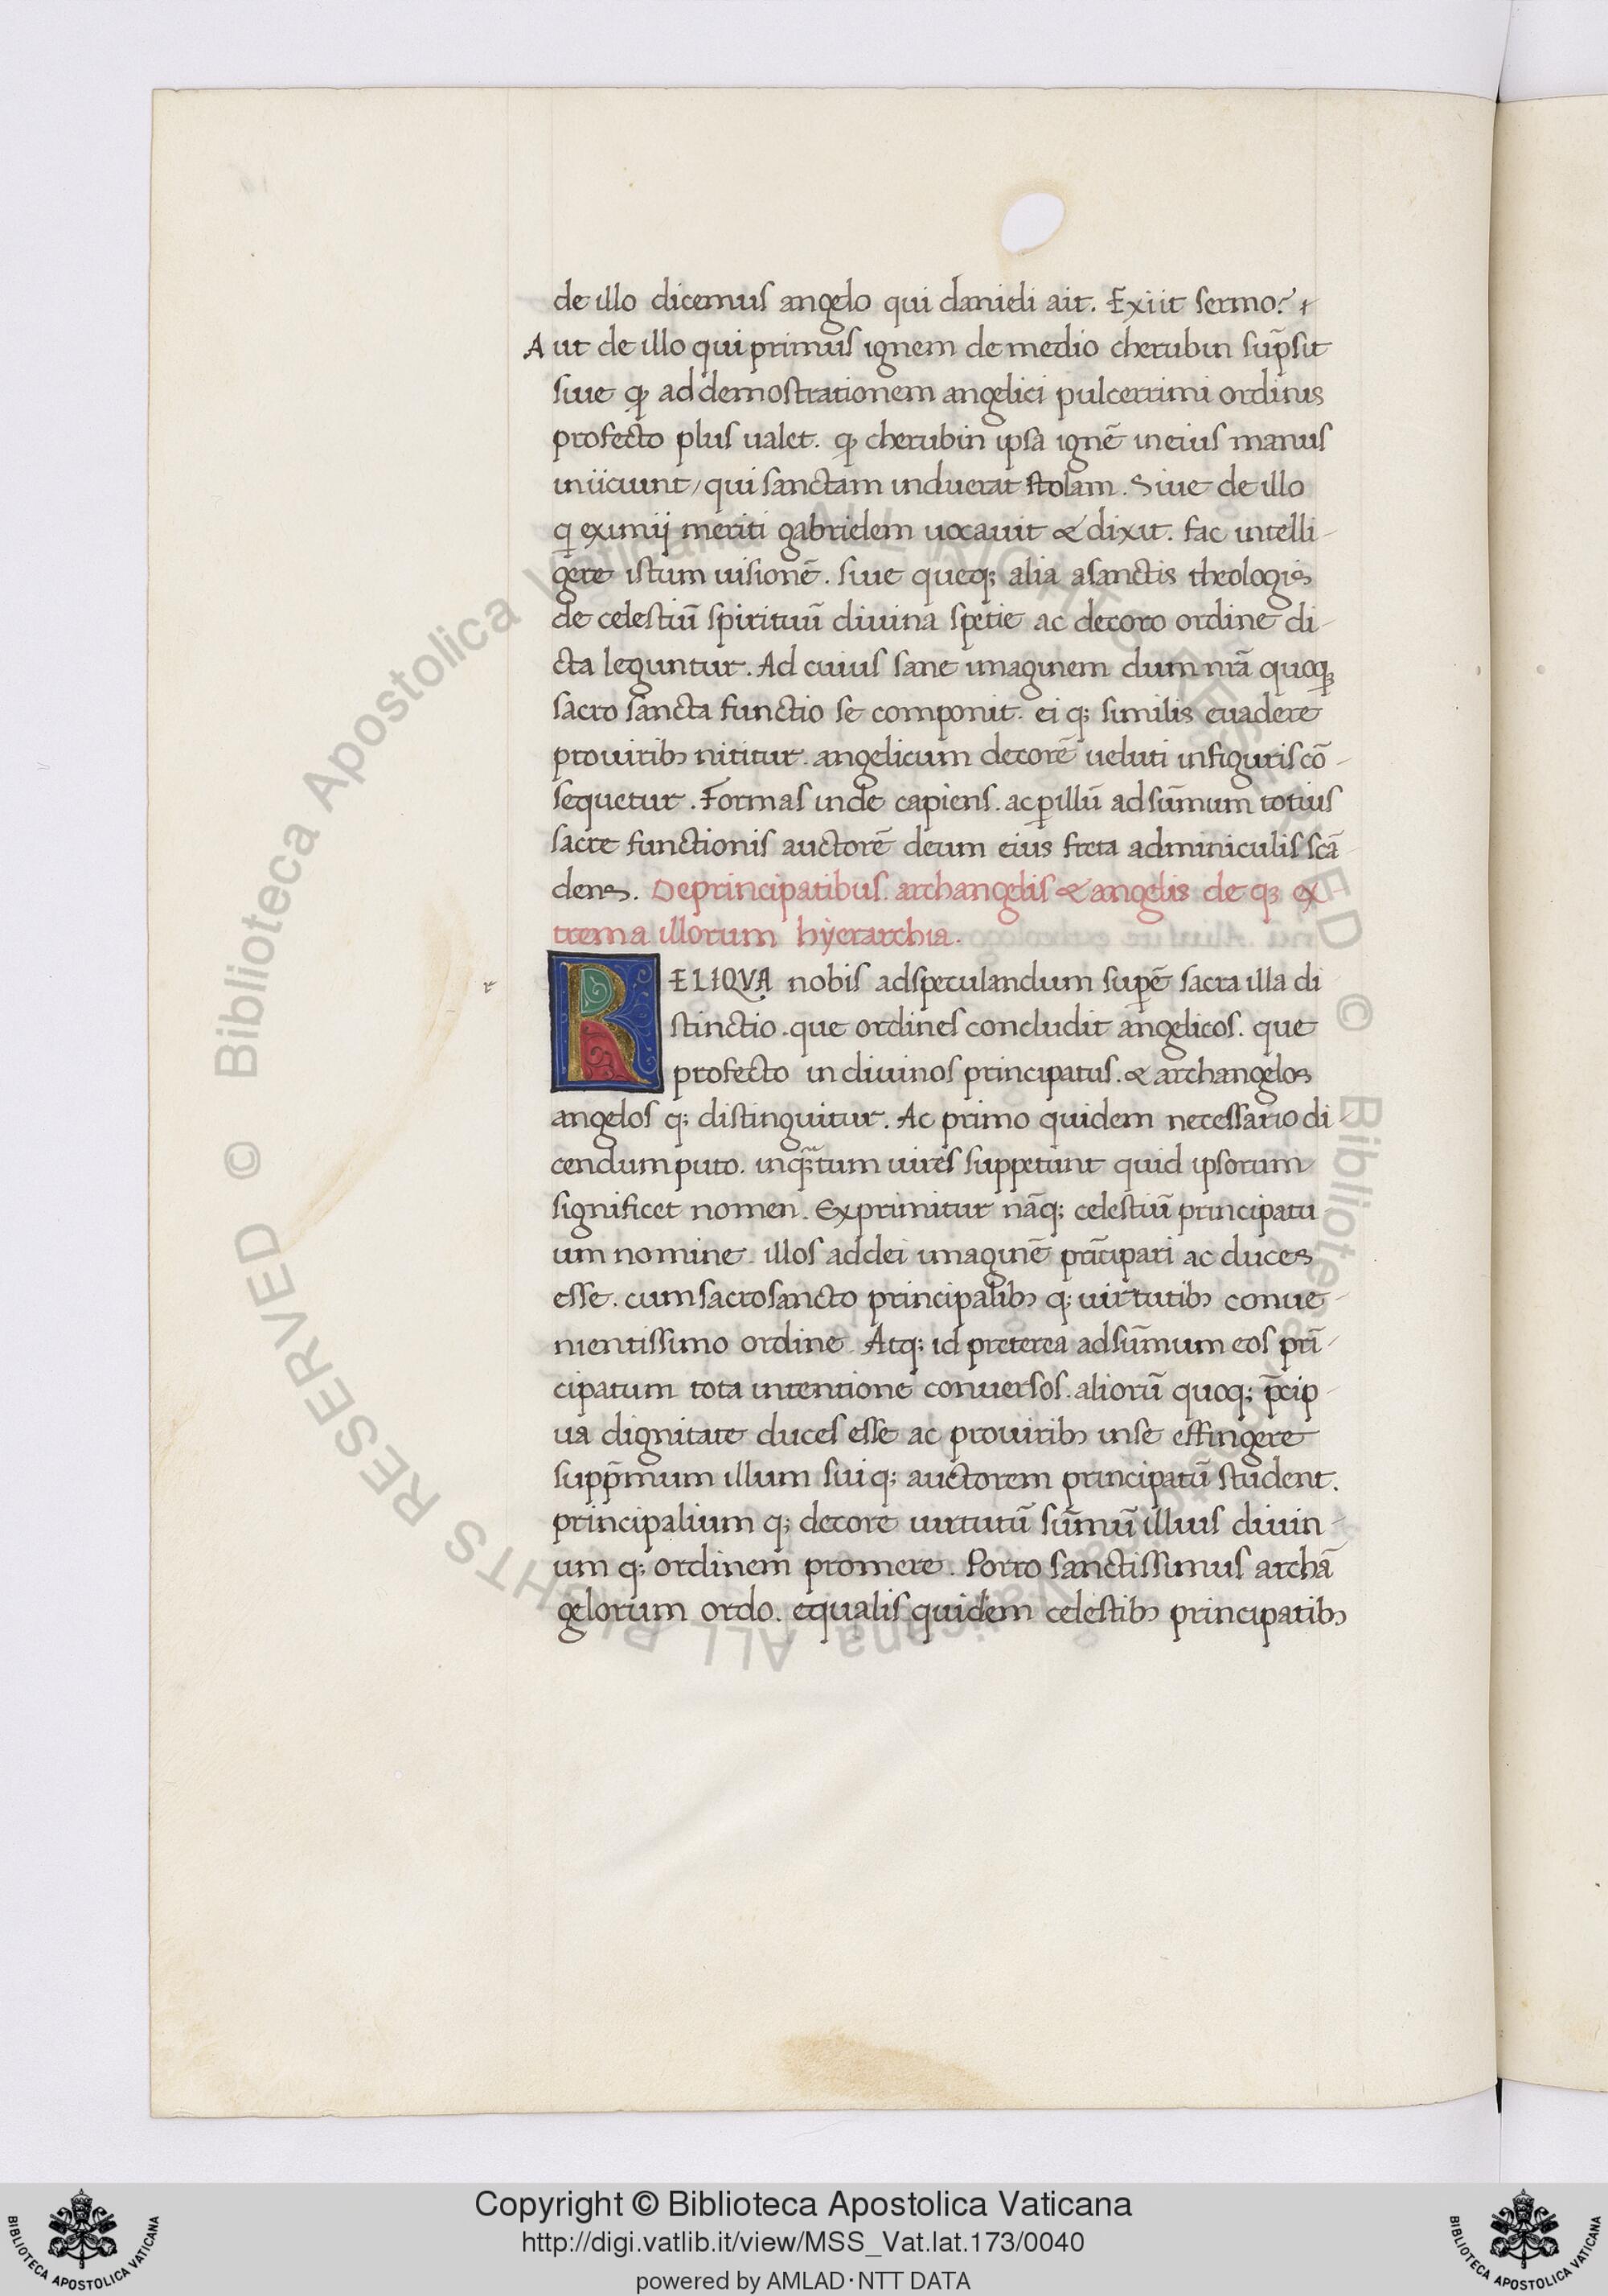 de illo dicemus angelo qui danieli ait. Exiit sermo?
Aut de illo qui primus ignem de medio cherubin sūpsit
siue ꝙ ad demostrationem angelici pulcerrimi ordinis
profecto plus ualet. ꝙ cherubin ipsa ignē in eius manus
iniiciunt/ qui sanctam induerat stolam. Siue de illo
q eximij meriti gabrielem uocauit & dixit. fac intelli-
gere istum uisionē. siue queq; alia a sanctis theologis
de celestiū spirituū diuina spetie ac decoro ordine di-
cta leguntur. Ad cuius sane imaginem dum nrā quoqꝫ
sacro sancta functio se componit. ei q; similis euadere
pro uiribꝫ nititur. angelicum decorē ueluti in figuris cō-
sequetur. Formas inde capiens. ac ꝑ illū ad sūmum totius
sacre functionis auctorē deum eius freta adminiculis scā
dens. De principatibus. archangelis & angelis de qꝫ ex
trema illorum hyerarchia.
r
RELIQVA nobis ad speculandum supē sacra illa di
stinctio. que ordines concludit angelicos. que
profecto in diuinos principatus. & archangelos
angelos q; distinguitur. Ac primo quidem necessario di-
cendum puto. inqꝫtum uires suppetunt quid ipsorum
significet nomen. Exprimitur nāq; celestiū principatu
um nomine. illos ad dei imaginē prīcipari ac duces
esse. cum sacrosancto principalibꝫ q; uirtutibꝫ conue-
nientissimo ordine. Atq; id preterea ad sūmum eos prī-
cipatum tota intentione conuersos. aliorū quoq; p̄cip-
ua dignitate duces esse ac pro uiribꝫ in se effingere
supp̄mum illum sui q; auctorem principatū student.
principalium q; decore uirtutū sūmū illius diuin-
um q; ordinem promere. Porro sanctissimus archā
gelorum ordo. equalis quidem celestibꝫ principatibꝫ
© Biblioteca Apostolica Vaticana ALL RIGHTS RESERVED
© Biblioteca Apostolica Vaticana ALL RIGHTS RESERVED
Copyright © Biblioteca Apostolica Vaticana
http://digi.vatlib.it/view/MSS_Vat.lat.173/0040
powered by AMLAD·NTT DATA
BIBLIOTECA APOSTOLICA VATICANA
BIBLIOTECA APOSTOLICA VATICANA